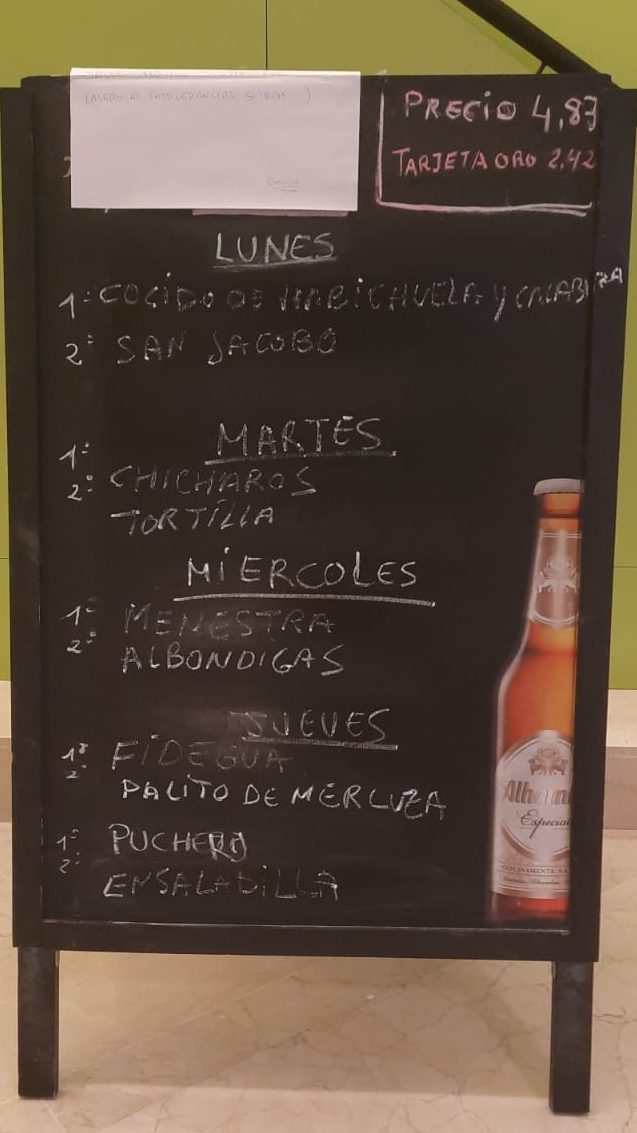 (ALERGIAS INTOLERANCIAS SE IBCM )
PRECIO 4,83
TARJETA ORO 2,42
LUNES
1º COCIDO DE HABICHUELA Y CALABAZA
2º SAN JACOBO
MARTES
1º
2º CHICHAROS
TORTILLA
MIERCOLES
1º MENESTRA
2º
ALBONDIGAS
JUEVES
1º FIDEGUA
2º
PALITO DE MERLUZA
1º PUCHERO
2º
ENSALADILLA
Alham
Especial